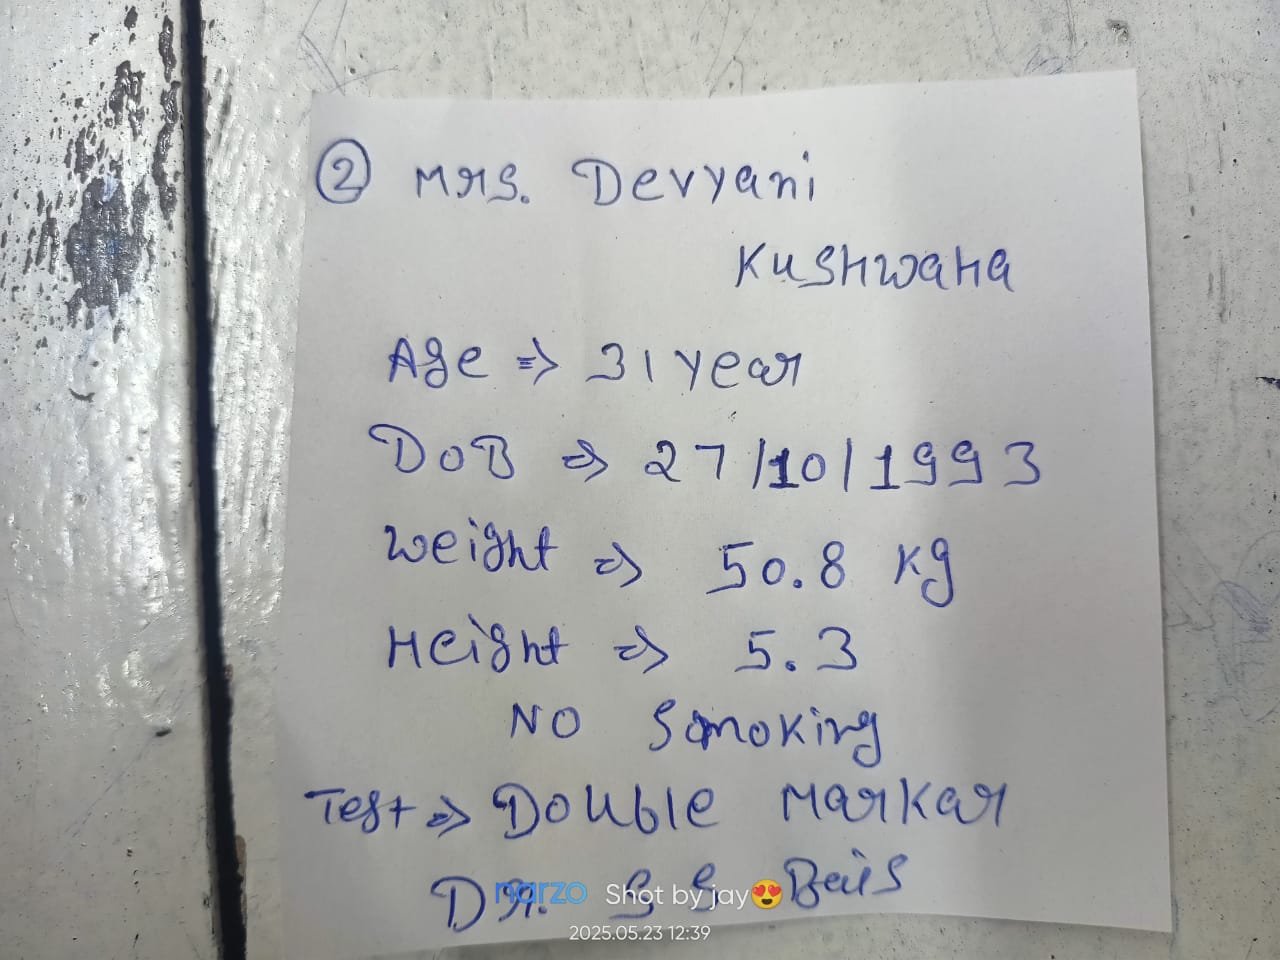 ② Mrs. Devyani
Kushwaha
Age ⇒ 31 year
DOB ⇒ 27/10/1993
Weight ⇒ 50.8 kg
Height ⇒ 5.3
NO Smoking
Test ⇒ Double Markar
Dr. S S Bais
narzo Shot by jay😍
2025.05.23 12:39